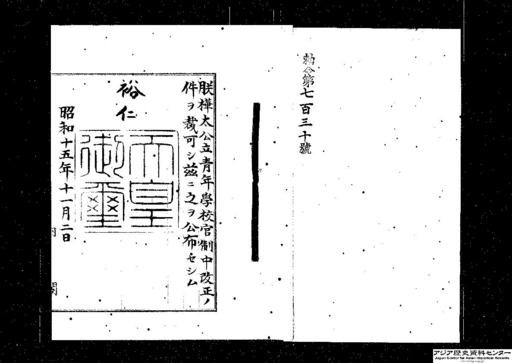 勅令第七百三十號
朕樺太公立青年學校官制中改正ノ
件ヲ裁可シ茲ニ之ヲ公布セシム
裕仁
天皇
御璽
昭和十五年十一月二日
アジア歴史資料センター
Japan Center for Asian Historical Records